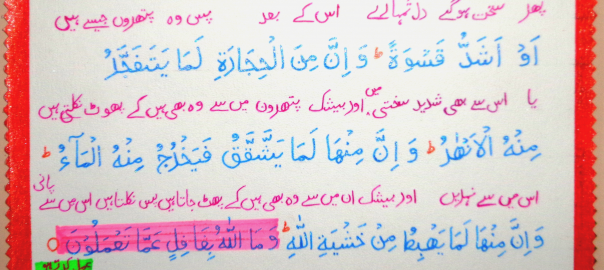 پھر سخت ہوگئے دل تمہارے اس کے بعد پس وہ پتھروں جیسے ہیں
اَوۡ اَشَدُّ قَسۡوَةً ؕ وَ اِنَّ مِنَ الۡحِجَارَةِ لَمَا يَتَفَجَّرُ
یا اس سے بھی شدید سختی میں اور بیشک پتھروں میں سے وہ بھی ہیں کے پھوٹ نکلتی ہیں
مِنۡهُ الۡاَنۡهٰرُ ؕ وَ اِنَّ مِنۡهَا لَمَا يَشَّقَّقُ فَيَخۡرُجُ مِنۡهُ الۡمَآءُ ؕ
اس میں سے نہریں اور بیشک ان میں سے وہ بھی ہیں کے پھٹ جاتا ہیں پس نکلتا ہیں اس میں سے پانی
وَ اِنَّ مِنۡهَا لَمَا يَهۡبِطُ مِنۡ خَشۡيَةِ اللّٰهِ ؕ وَ مَا اللّٰهُ بِغَافِلٍ عَمَّا تَعۡمَلُوۡنَ ○